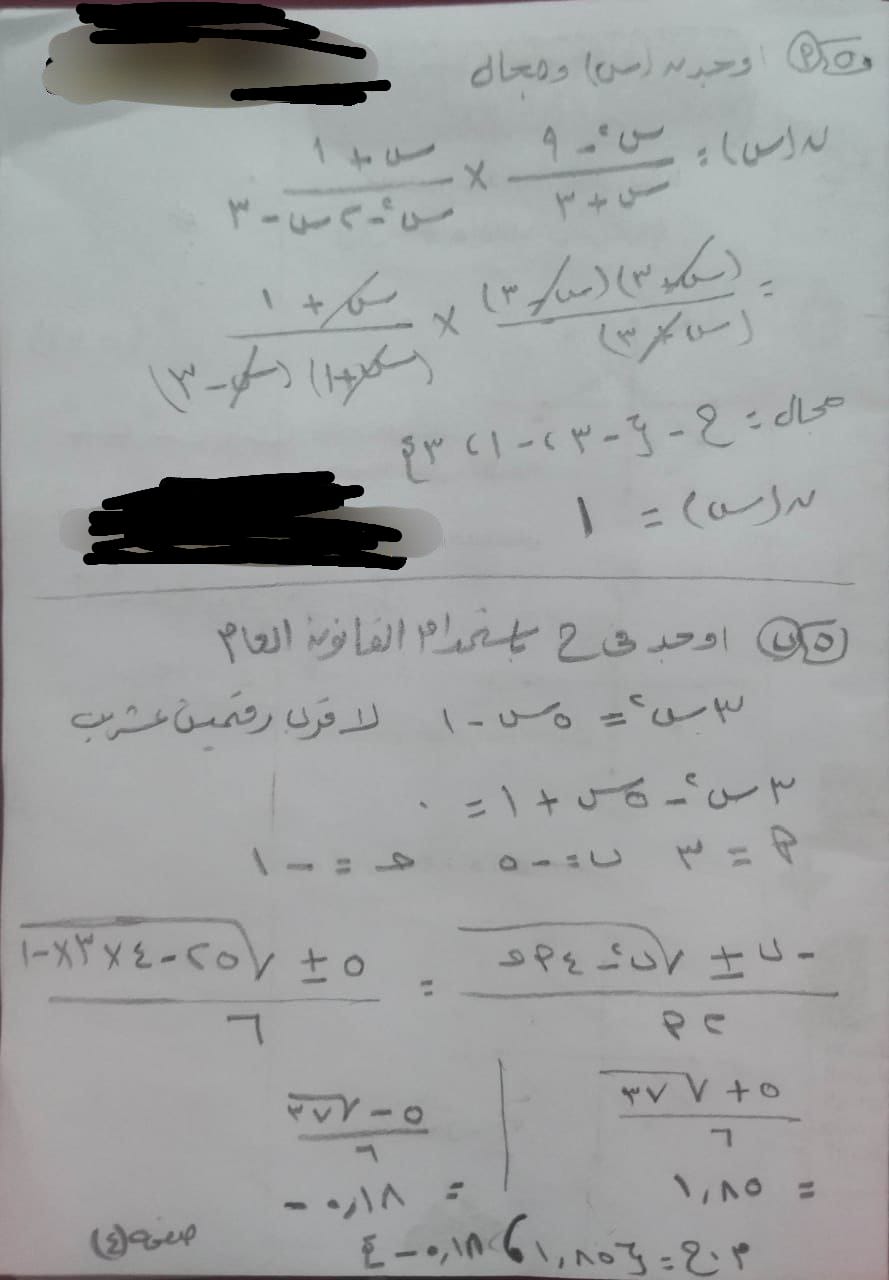 س٥ (أ) اوجد ن(س) ومجال
ن(س) = (س² - ٩)/(س + ٣) × (س + ١)/(س² - ٢س - ٣)
= (س + ٣)(س - ٣)/(س + ٣) × (س + ١)/((س + ١)(س - ٣))
مجال = ح - {-٣، -١، ٣}
ن(س) = ١
س٥ (ب) اوجد فى ح باستخدام القانون العام
٣س² = ٥س - ١ لاقرب رقمين عشرين
٣س² - ٥س + ١ = ٠
أ = ٣ ب = -٥ حـ = -١
(-ب ± √(ب² - ٤أحـ))/(٢أ) = (٥ ± √(٢٥ - ٤×٣×-١))/٦
(٥ + √٣٧)/٦ | (٥ - √٣٧)/٦
= ١,٨٥ | = -٠,١٨
م.ح = {١,٨٥، -٠,١٨}
صفحة (٤)